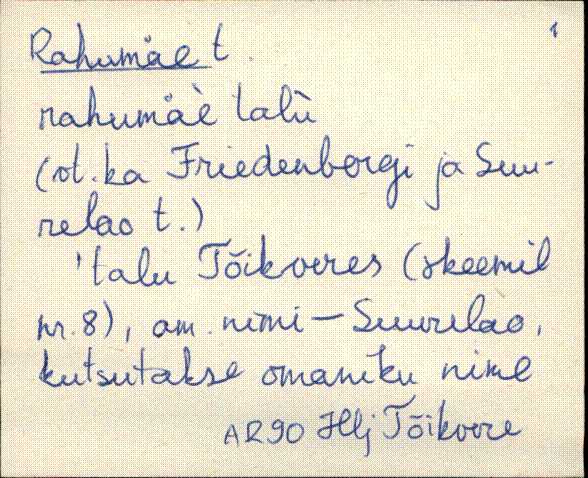 1
Rahumäe t.
rahumäè talù
(vt. ka Friedenborgi ja Suu-
relao t.)
'talu Tõikveres (skeemil
nr. 8), am. nimi – Suurelao,
kutsutakse omaniku nime
AR90 Hlj Tõikvere